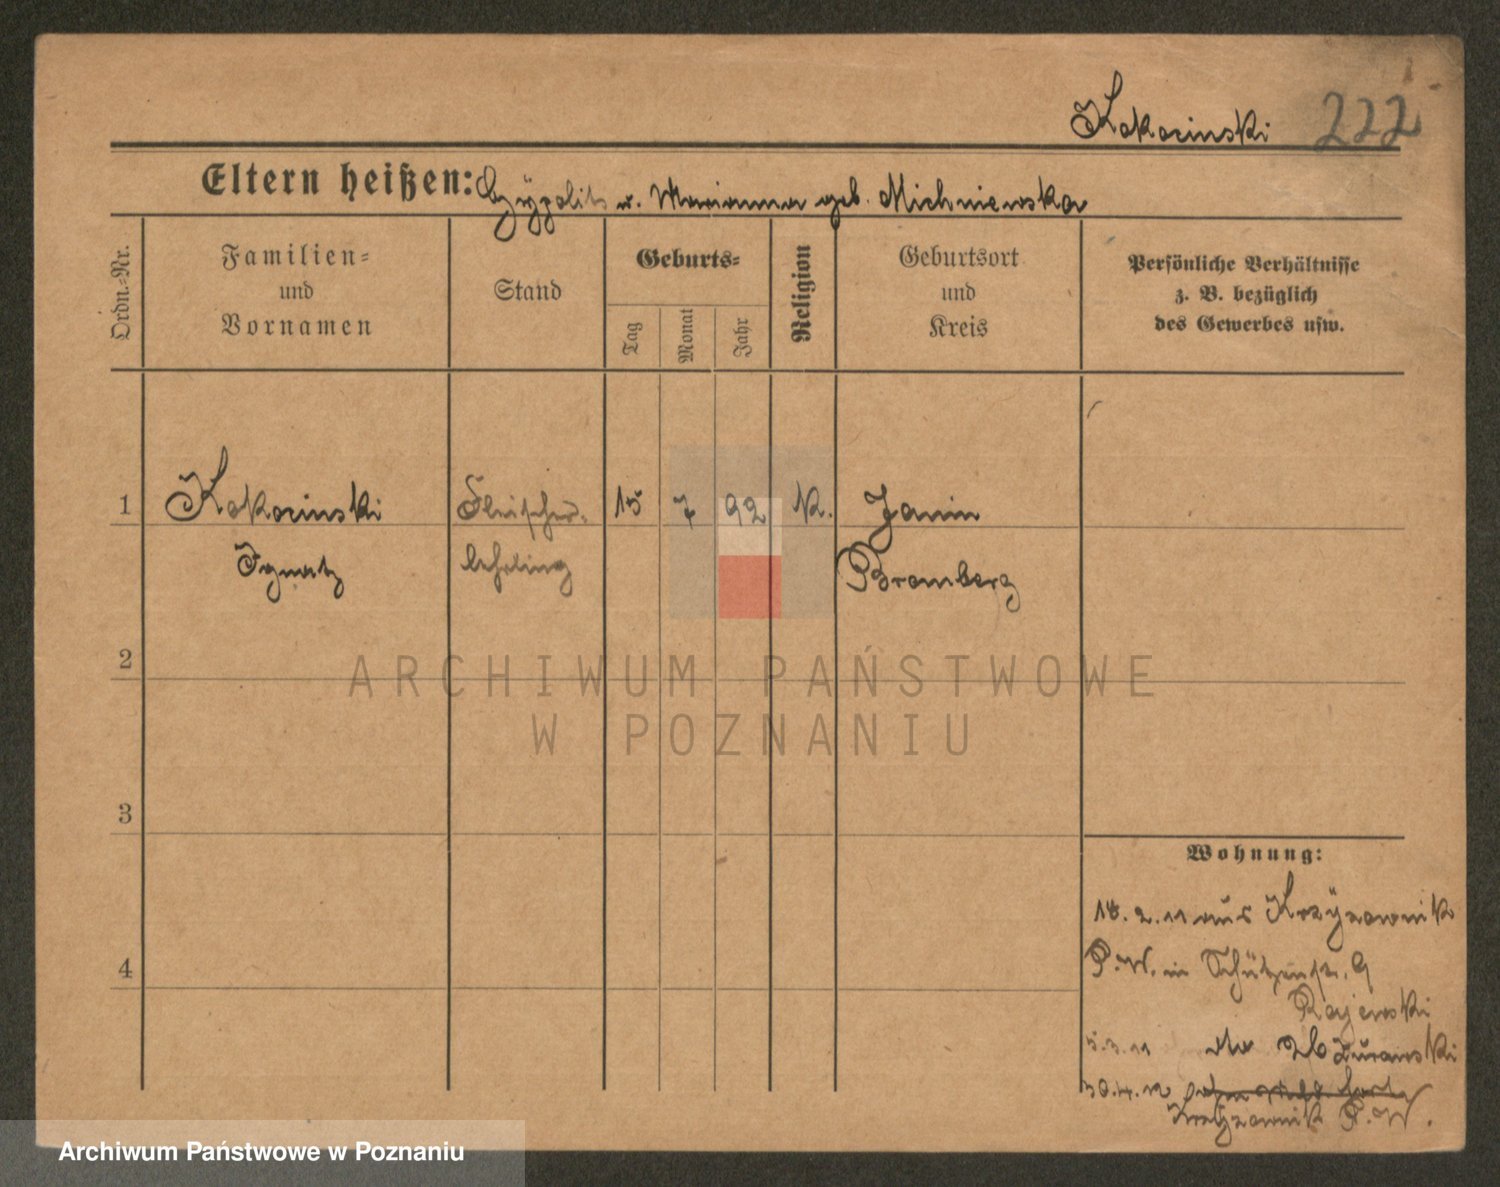 Kokocinski 222
Eltern heißen: Hypolit u. Marianna geb. Michniewska
Ordn.-Nr.
Familien-
und
Vornamen
Stand
Geburts-
Tag
Monat
Jahr
Religion
Geburtsort
und
Kreis
Persönliche Verhältnisse
z. B. bezüglich
des Gewerbes usw.
1 Kokocinski Fleischer- 15 7 92 K. Janin
Ignatz lehrling Bromberg
2
3
4
Wohnung:
18.2.11 aus Krzyzownik
P.W. in Schützenstr. 9
Rajewski
5.3.11 dto 26 Zurawski
30.4.12
Krzyzownik P.W.
ARCHIWUM PAŃSTWOWE
W POZNANIU
Archiwum Państwowe w Poznaniu